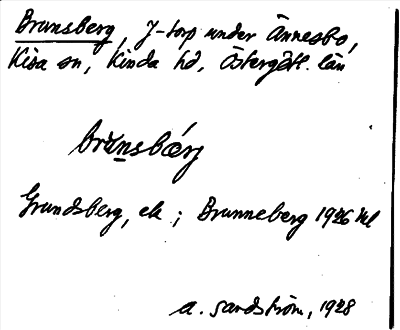 Brunsberg, J-torp under Ännesbo,
Kisa sn, Kinda hd, Östergötl. län
brùnsbærj
Grundsberg, ek; Brunneberg 1926
A. Sandström, 1928